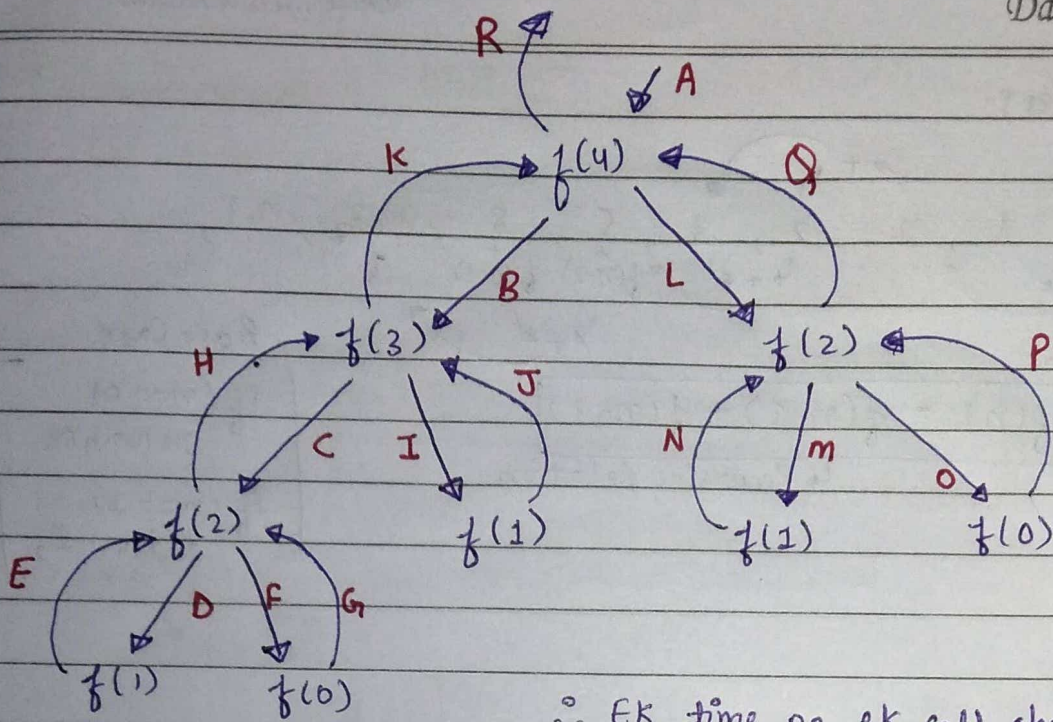 Da
R
A
f(4)
K
Q
B
L
f(3)
f(2)
H
J
P
C
I
N
m
O
f(2)
f(1)
f(1)
f(0)
E
D
F
G
f(1)
f(0)
∴ EK time pe ek